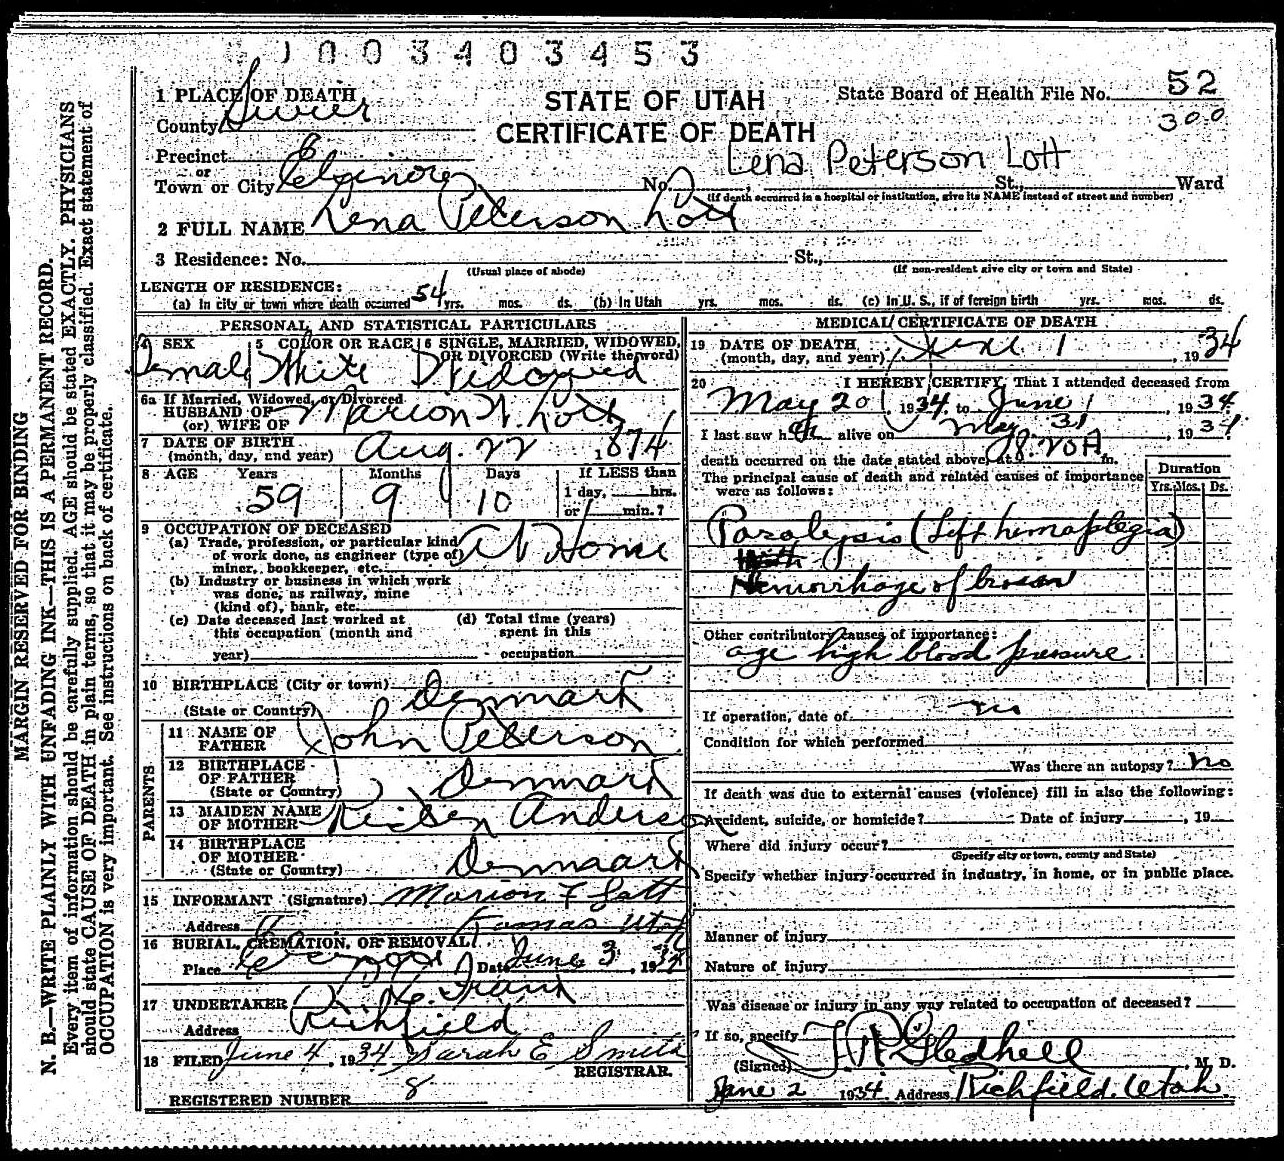 1003403453
1 PLACE OF DEATH
STATE OF UTAH
CERTIFICATE OF DEATH
State Board of Health File No. 52
300
County Sevier
Precinct
or
Town or City Elsinore
Lena Peterson Lott
No. St., Ward
(If death occurred in a hospital or institution, give its NAME instead of street and number)
2 FULL NAME Lena Peterson Lott
3 Residence: No. St.,
(Usual place of abode) (If non-resident give city or town and State)
LENGTH OF RESIDENCE:
(a) In city or town where death occurred 54 yrs. mos. ds. (b) In Utah yrs. mos. ds. (c) In U. S., if of foreign birth yrs. mos. ds.
PERSONAL AND STATISTICAL PARTICULARS
4 SEX 5 COLOR OR RACE 6 SINGLE, MARRIED, WIDOWED,
OR DIVORCED (Write the word)
Female White Widowed
6a If Married, Widowed, or Divorced
HUSBAND OF
(or) WIFE OF Marion W. Lott
7 DATE OF BIRTH
(month, day, and year) Aug. 22 1874
8 AGE Years Months Days If LESS than
59 9 10 1 day, hrs.
or min.?
9 OCCUPATION OF DECEASED
(a) Trade, profession, or particular kind
of work done, as engineer (type of)
miner, bookkeeper, etc. At Home
(b) Industry or business in which work
was done, as railway, mine
(kind of), bank, etc.
(c) Date deceased last worked at
this occupation (month and
year)
(d) Total time (years)
spent in this
occupation
10 BIRTHPLACE (City or town)
(State or Country) Denmark
PARENTS
11 NAME OF
FATHER John Peterson
12 BIRTHPLACE
OF FATHER
(State or Country) Denmark
13 MAIDEN NAME
OF MOTHER Kisten Anderson
14 BIRTHPLACE
OF MOTHER
(State or Country) Denmaark
15 INFORMANT (Signature) Marion F Lott
Address Kamas Utah
16 BURIAL, CREMATION, OR REMOVAL
Place Date June 3, 1934
17 UNDERTAKER
Address Richfield
18 FILED June 4, 1934 Sarah E Smith
REGISTRAR.
REGISTERED NUMBER 8
MEDICAL CERTIFICATE OF DEATH
19 DATE OF DEATH
(month, day, and year) June 1 1934
20 I HEREBY CERTIFY, That I attended deceased from
May 20, 1934 to June 1, 1934
I last saw her alive on May 31, 1934
death occurred on the date stated above, at 8:20 A m.
The principal cause of death and related causes of importance
were as follows:
Duration
Yrs. Mos. Ds.
Paralysis (Left hemaplegia)
Hemorrhage of brain
Other contributory causes of importance:
age high blood pressure
If operation, date of no
Condition for which performed
Was there an autopsy? no
If death was due to external causes (violence) fill in also the following:
Accident, suicide, or homicide? Date of injury, 19
Where did injury occur?
(Specify city or town, county and State)
Specify whether injury occurred in industry, in home, or in public place.
Manner of injury
Nature of injury
Was disease or injury in any way related to occupation of deceased?
If so, specify
(Signed) T. R. Gledhell M. D.
June 2 1934 Address Richfield. Utah
MARGIN RESERVED FOR BINDING
N. B.—WRITE PLAINLY WITH UNFADING INK—THIS IS A PERMANENT RECORD.
Every item of information should be carefully supplied. AGE should be stated EXACTLY. PHYSICIANS
should state CAUSE OF DEATH in plain terms, so that it may be properly classified. Exact statement of
OCCUPATION is very important. See instructions on back of certificate.